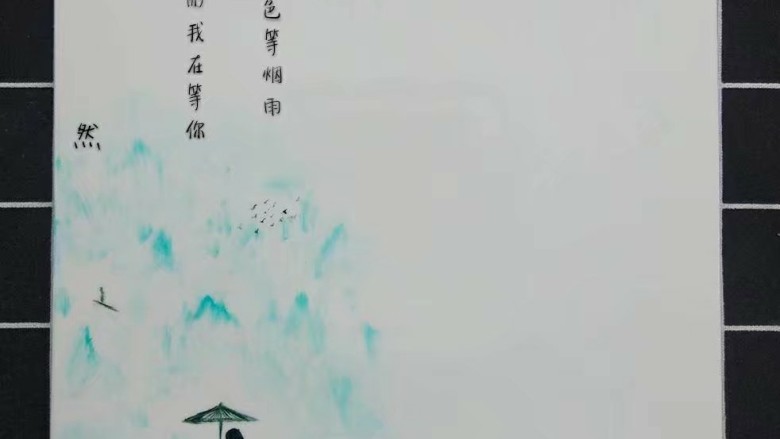 色等烟雨
我在等你
然